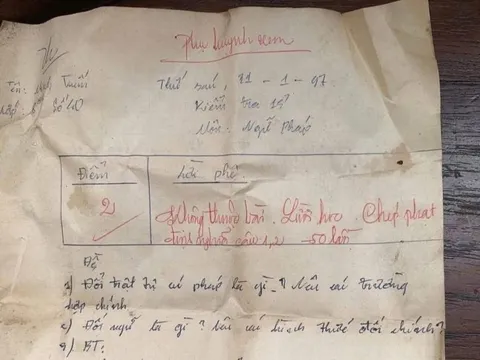 Phụ huynh xem
Tên: Tuấn
Thứ sáu, 11 - 1 - 97
Lớp: Số 40
Kiểm tra 15'
Môn: Ngữ Pháp
Điểm
Lời phê
2
Không thuộc bài. Lười học. Chép phạt
định nghĩa câu 1, 2 50 lần
Đề
1) Đổi trật tự cú pháp là gì? Nêu các trường
hợp chính
2) Đối ngữ là gì? Nêu các hình thức đối chính?
3) BT: